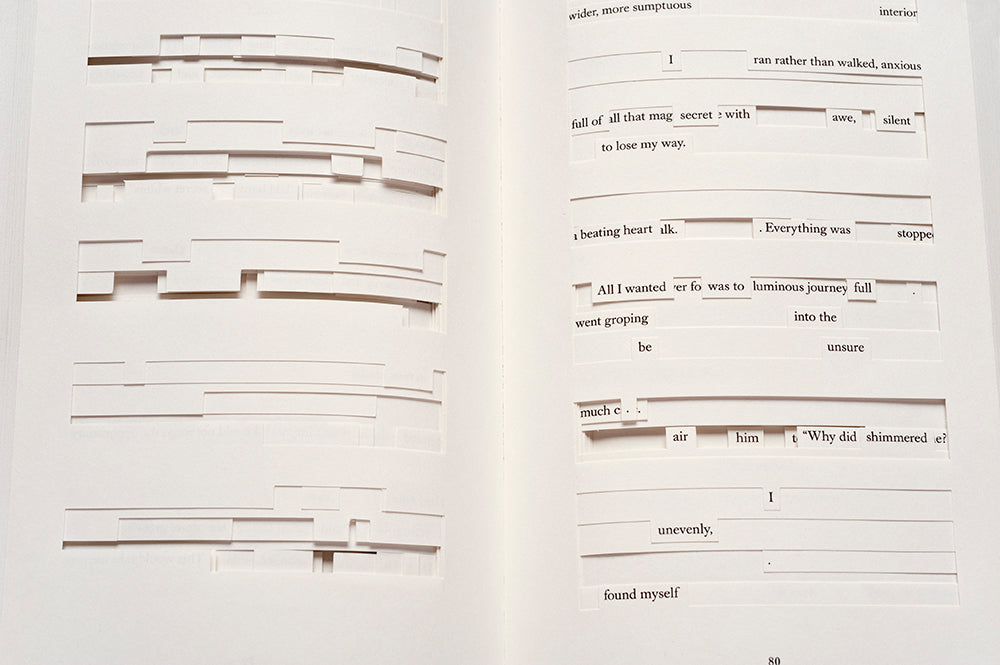 wider, more sumptuous interior
I ran rather than walked, anxious
full of all that mag secret with awe, silent
to lose my way.
a beating heart alk. . Everything was stoppe
All I wanted ver fo was to luminous journey full .
went groping into the
be unsure
much c . .
air him t “Why did shimmered e?
I
unevenly,
.
found myself
80